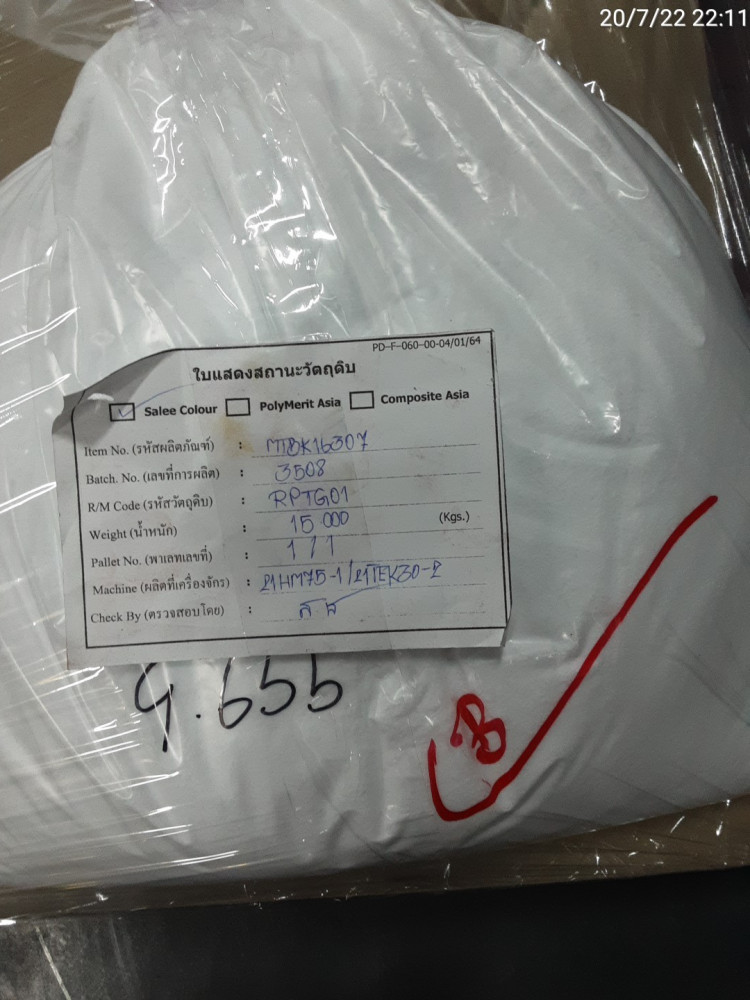 20/7/22 22:11
PD-F-060-00-04/01/64
ใบแสดงสถานะวัตถุดิบ
Salee Colour PolyMerit Asia Composite Asia
Item No. (รหัสผลิตภัณฑ์) : MTBK16307
Batch. No. (เลขที่การผลิต) : 3508
R/M Code (รหัสวัตถุดิบ) : RPTG01
Weight (น้ำหนัก) : 15 000 (Kgs.)
Pallet No. (พาเลทเลขที่) : 1/1
Machine (ผลิตที่เครื่องจักร) : 21HM75-1/21TEK30-2
Check By (ตรวจสอบโดย) :
9.655
B